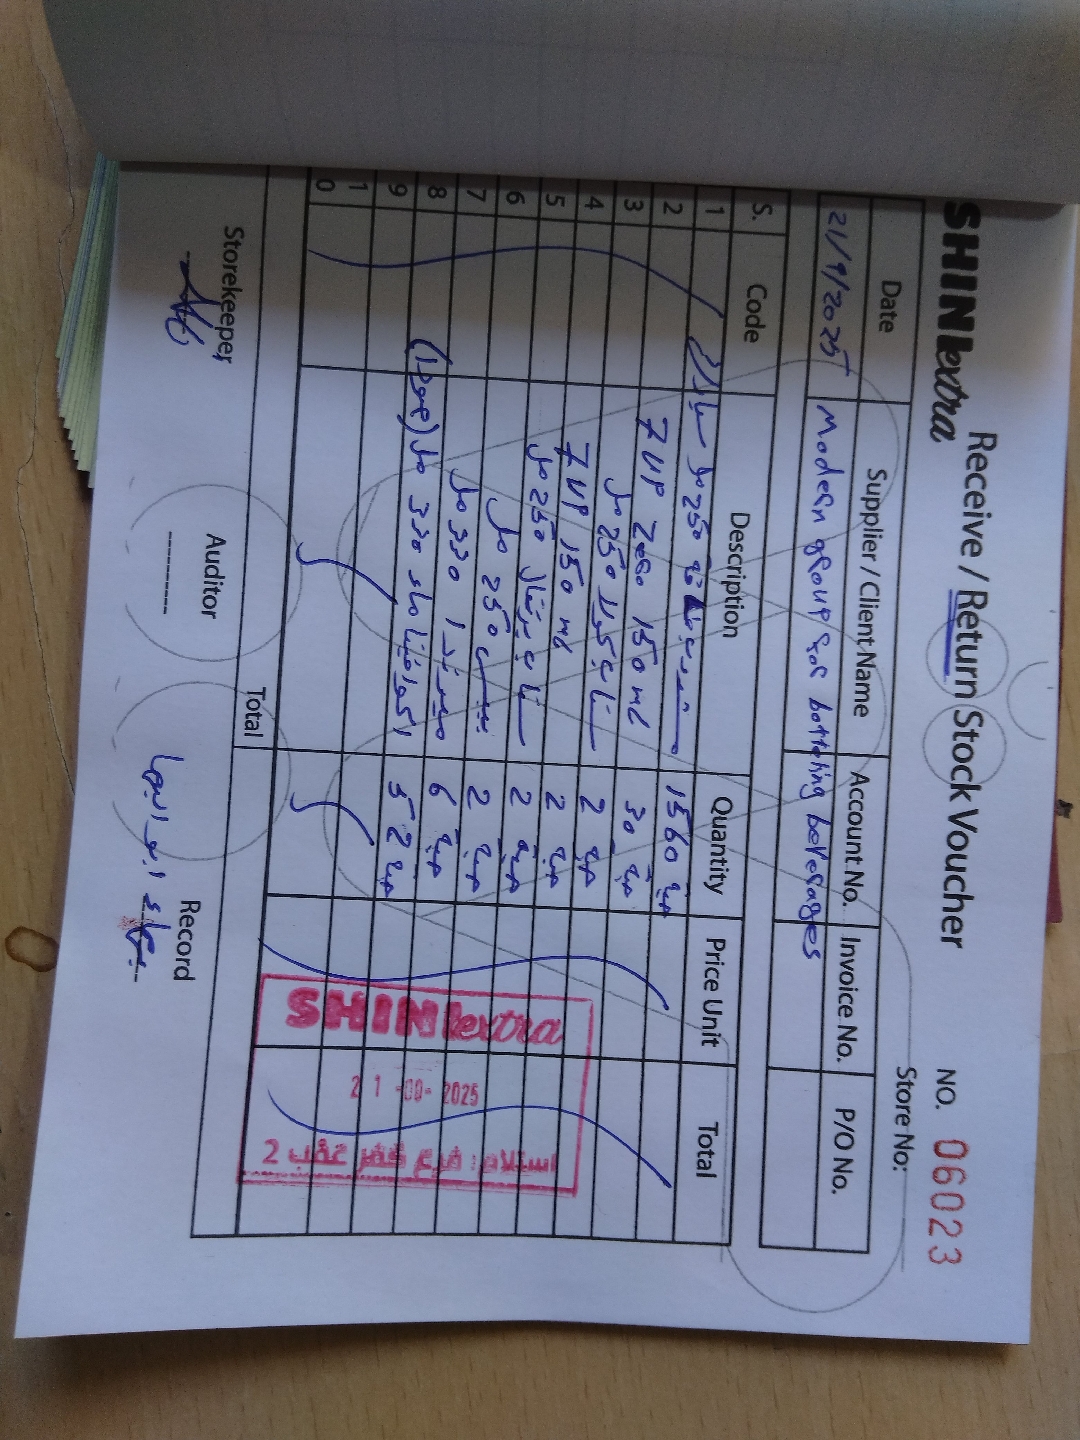 SHINI extra
Receive / Return Stock Voucher
NO. 06023
Store No:
Date Supplier / Client Name Account No. Invoice No. P/O No.
21/9/2025 Modern group for botteling beverages
S. Code Description Quantity Price Unit Total
1 250 مل 1560 حبة
2 7 UP Zero 150 ml 30 حبة
3 250 مل 2 حبة
4 7 UP 150 ml 2 حبة
5 شاني برتقال 250 مل 2 حبة
6 بيبسي 250 مل 2 حبة
7 ميرندا 330 مل 6 حبة
8 اكوافينا ماء 330 مل 52 حبة
9
1
0
Total
Storekeeper
Auditor
Record
SHINI extra
21-09-2025
استلام: فرع كفر عقب 2